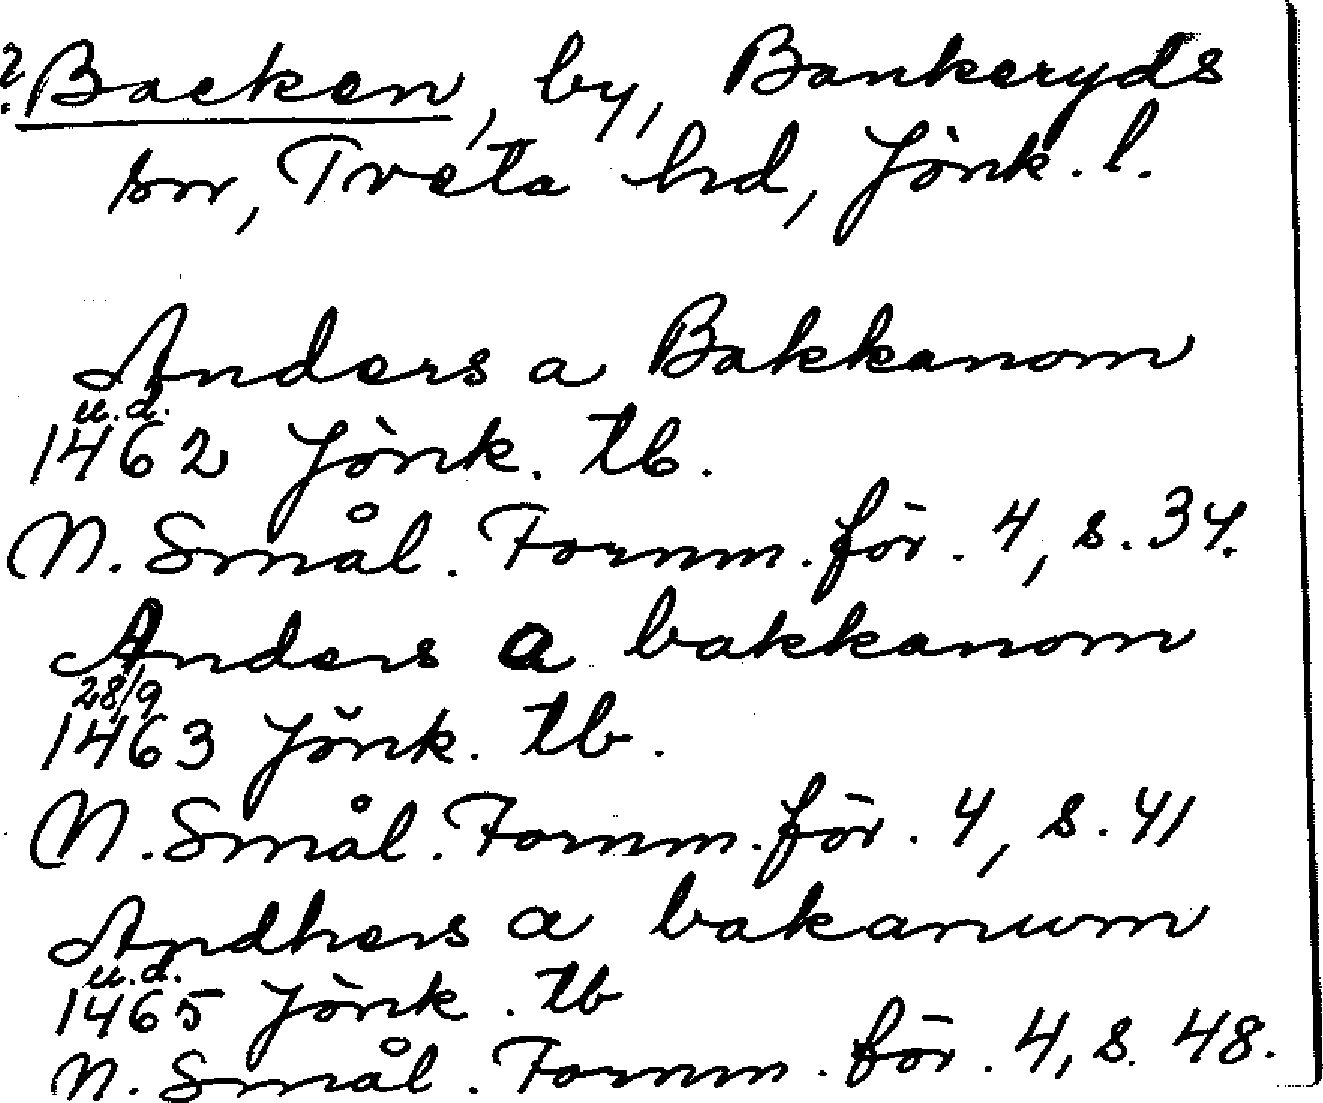 ? Backen, by, Bankeryds
sn, Tveta hd, Jönk. l.
Anders a Bakkanom
u.d.
1462 Jönk. tb.
N. Smål. Fornm. för. 4, s. 37.
Anders a bakkanom
28/9
1463 Jönk. tb.
N. Smål. Fornm. för. 4, s. 41
Andhers a bakanum
u.d.
1465 Jönk. tb
N. Smål. Fornm. för. 4, s. 48.